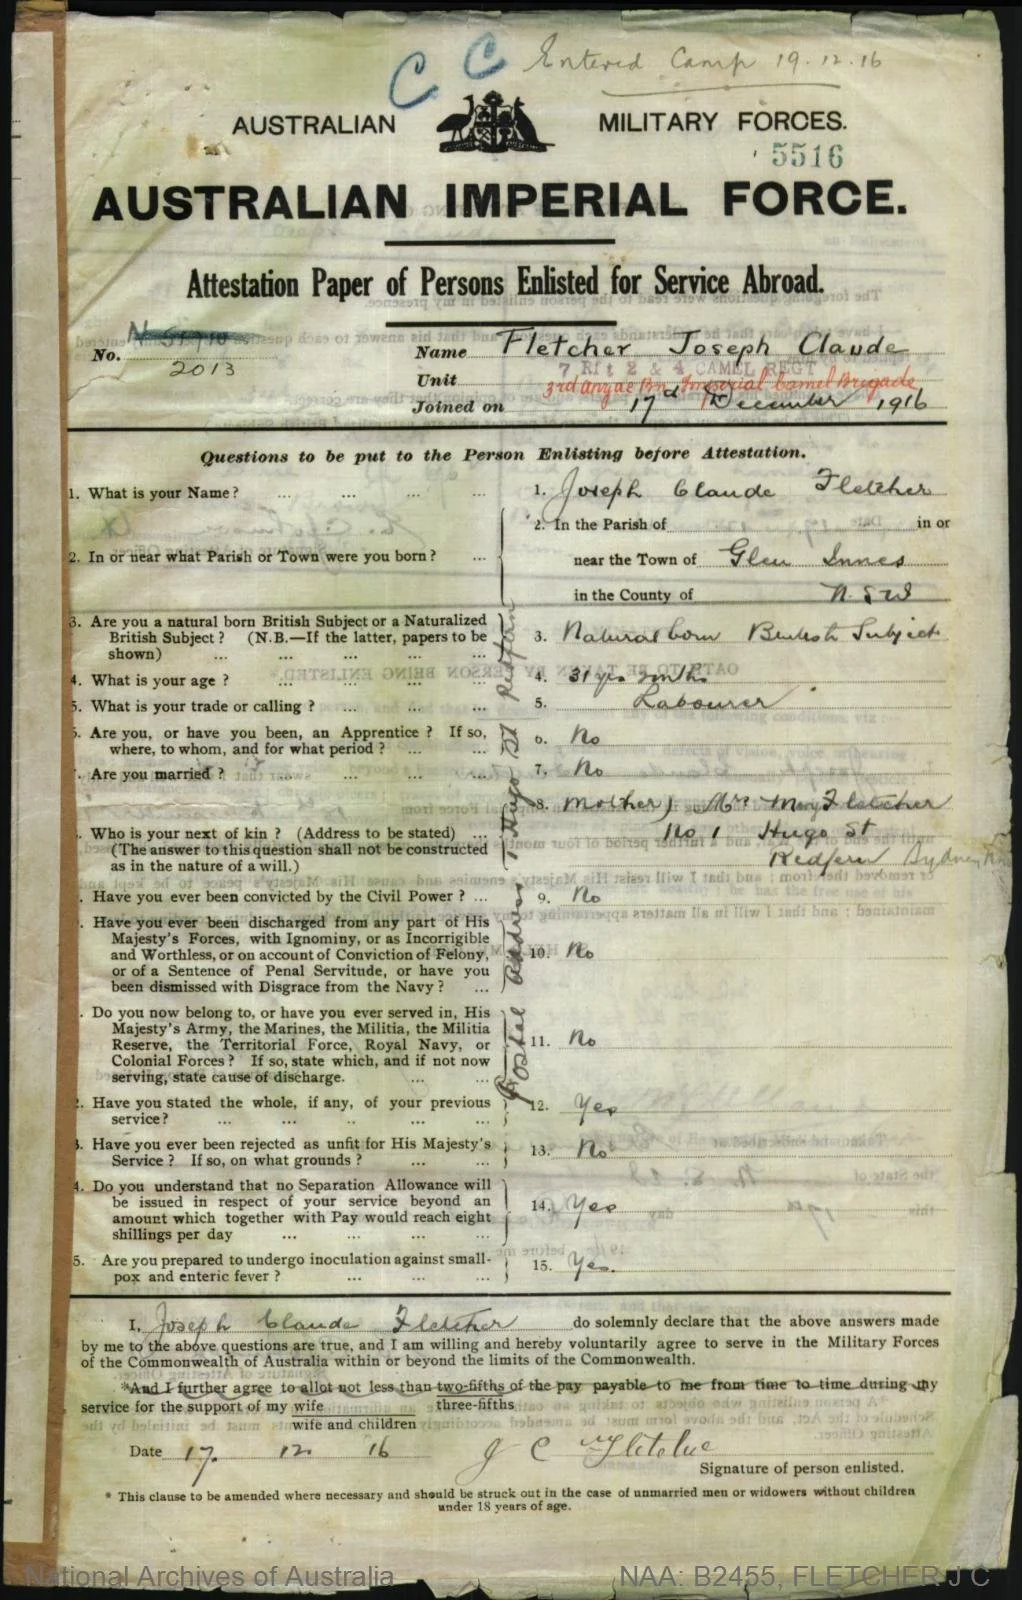 C C Entered Camp 19.12.16
AUSTRALIAN MILITARY FORCES.
5516
AUSTRALIAN IMPERIAL FORCE.
Attestation Paper of Persons Enlisted for Service Abroad.
No. 2013
Name Fletcher Joseph Claude
7 Rft 2 & 4 CAMEL REGT
Unit 3rd Anzac Bn Imperial Camel Brigade
Joined on 17d December 1916
Questions to be put to the Person Enlisting before Attestation.
1. What is your Name? ... ... ... ... 1. Joseph Claude Fletcher
2. In or near what Parish or Town were you born? ... 2. In the Parish of in or
near the Town of Glen Innes
in the County of N.S.W
3. Are you a natural born British Subject or a Naturalized
British Subject? (N.B.—If the latter, papers to be
shown) ... ... ... ... 3. Natural born British Subject
4. What is your age? ... ... ... ... 4. 31 yrs mths
5. What is your trade or calling? ... ... ... 5. Labourer
6. Are you, or have you been, an Apprentice? If so,
where, to whom, and for what period? ... ... 6. No
7. Are you married? ... ... ... ... 7. No
Who is your next of kin? (Address to be stated) ...
(The answer to this question shall not be constructed
as in the nature of a will.)
8. Mother) Mrs Mary Fletcher
No 1 Hugo St
Redfern Sydney
Postal Address 1 Hugo St Redfern
. Have you ever been convicted by the Civil Power? ... 9. No
. Have you ever been discharged from any part of His
Majesty's Forces, with Ignominy, or as Incorrigible
and Worthless, or on account of Conviction of Felony,
or of a Sentence of Penal Servitude, or have you
been dismissed with Disgrace from the Navy? ... 10. No
. Do you now belong to, or have you ever served in, His
Majesty's Army, the Marines, the Militia, the Militia
Reserve, the Territorial Force, Royal Navy, or
Colonial Forces? If so, state which, and if not now
serving, state cause of discharge. ... ... 11. No
2. Have you stated the whole, if any, of your previous
service? ... ... .. ... ... 12. Yes
3. Have you ever been rejected as unfit for His Majesty's
Service? If so, on what grounds? ... ... 13. No
4. Do you understand that no Separation Allowance will
be issued in respect of your service beyond an
amount which together with Pay would reach eight
shillings per day ... ... ... ... 14. Yes
5. Are you prepared to undergo inoculation against small-
pox and enteric fever? ... ... ... 15. Yes.
I, Joseph Claude Fletcher do solemnly declare that the above answers made
by me to the above questions are true, and I am willing and hereby voluntarily agree to serve in the Military Forces
of the Commonwealth of Australia within or beyond the limits of the Commonwealth.
*And I further agree to allot not less than two-fifths of the pay payable to me from time to time during my
service for the support of my wife three-fifths
wife and children
Date 17. 12. 16 J C Fletcher
Signature of person enlisted.
* This clause to be amended where necessary and should be struck out in the case of unmarried men or widowers without children
under 18 years of age.
National Archives of Australia NAA: B2455, FLETCHER J C